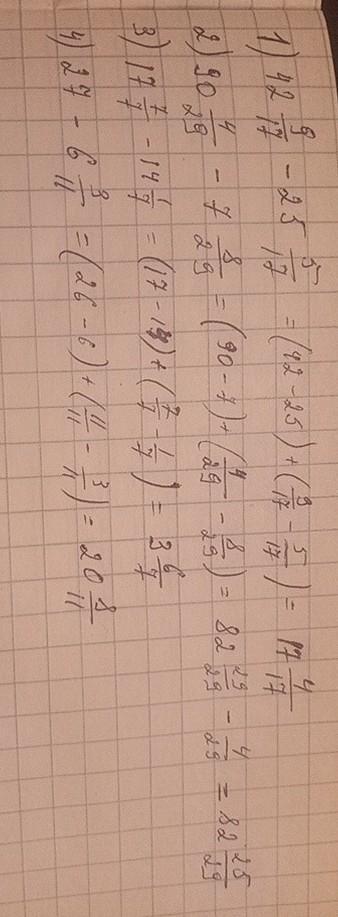 1) 42 9/17 - 25 5/17 = (42 - 25) + (9/17 - 5/17) = 17 4/17
2) 90 4/29 - 7 8/29 = (90 - 7) + (4/29 - 8/29) = 82 29/29 - 4/29 = 82 25/29
3) 17 7/7 - 14 1/7 = (17 - 14) + (7/7 - 1/7) = 3 6/7
4) 27 - 6 3/11 = (26 - 6) + (11/11 - 3/11) = 20 8/11